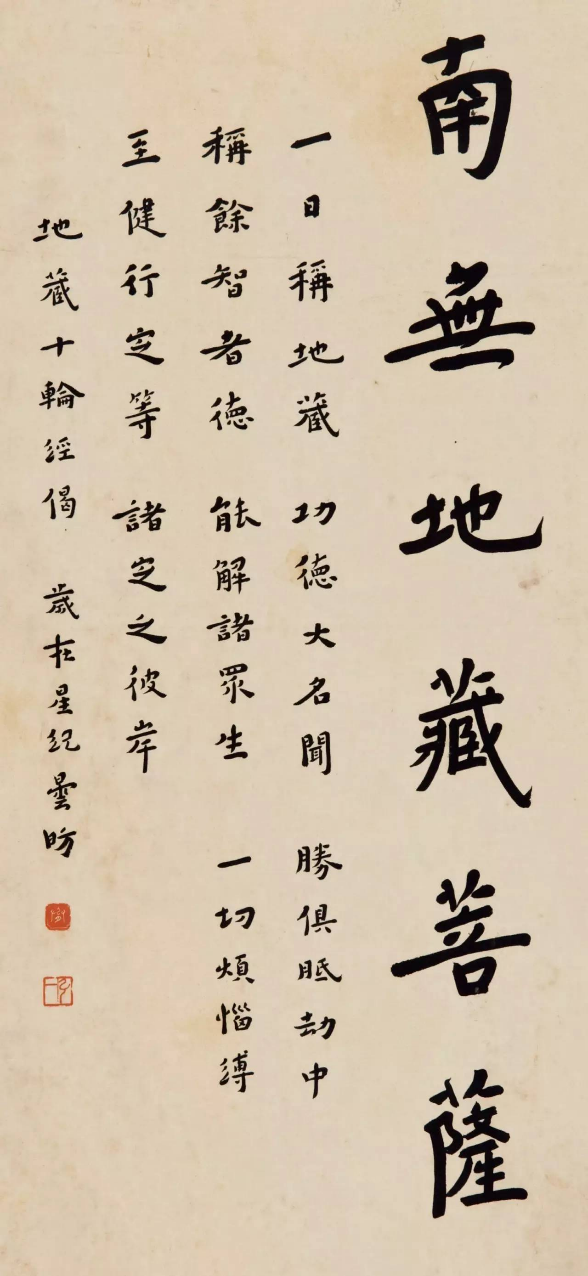 南無地藏菩薩
一日稱地藏 功德大名聞 勝俱胝劫中
稱餘智者德 能解諸眾生 一切煩惱縛
至健行定等 諸定之彼岸
地藏十輪經偈 歲在星紀 曇昉